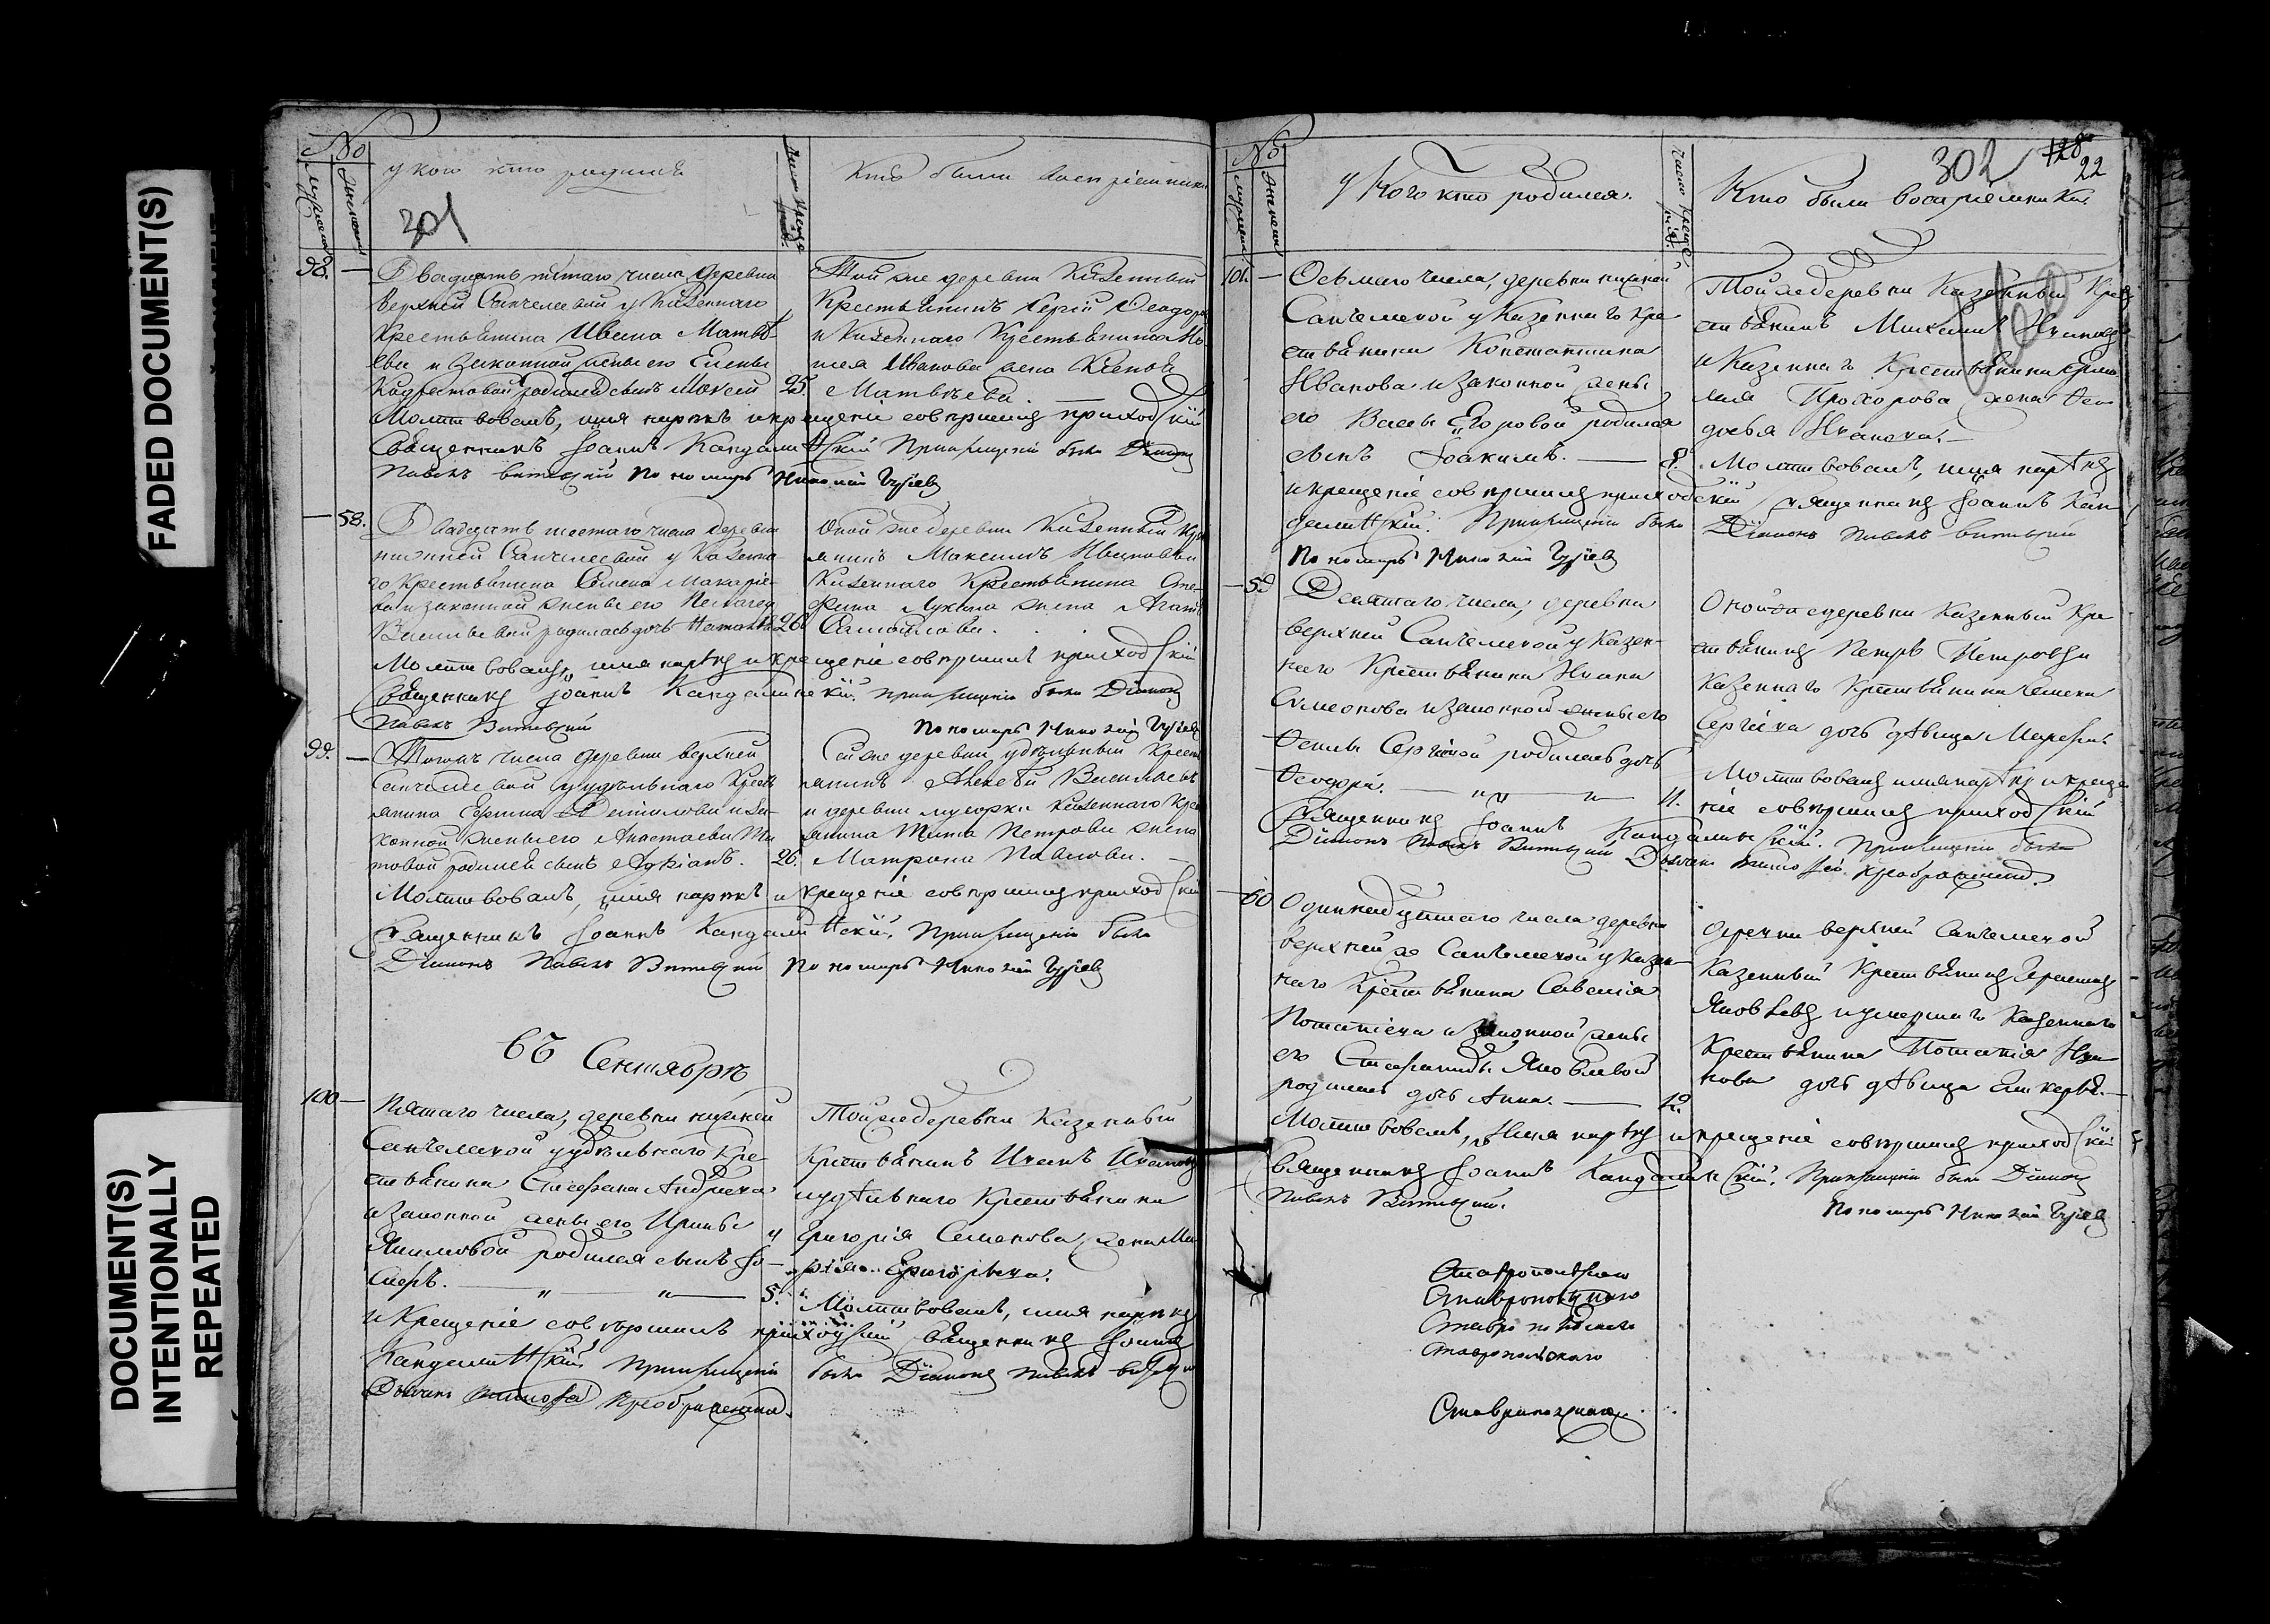 FADED DOCUMENT(S)
DOCUMENT(S)
INTENTIONALLY
REPEATED
№
мужеска
женска
у кого кто родился
число креще
Кто были восприемники
301
98. — Двадцать пятаго числа деревни
верхней Санчелеевой у казеннаго
крестьянина Ивана Матвѣ-
ева и законной жены его Елены
родился сынъ Моисей 25.
Той же деревни казенный
крестьянинъ Сергій Ѳеодоро
и казеннаго крестьянина Мо
исея Иванова жена Ксенія
Матвѣева. —
Молитвовалъ, имя нарекъ и крещеніе совершилъ приходскій
Священникъ Іоаннъ Кандалинскій При крещеніи были Діаконъ
Павелъ Пономарь Николай Гусевъ
— 58. Двадцать шестаго числа деревни
нижней Санчелеевой у казенна-
го крестьянина Семена Макаріе-
ва и законной жены его Пелагеи
Васильевой родилась дочь Наталья 26
Оной же деревни казенный кре
янинъ Максимъ Ивановъ и
казеннаго крестьянина Сте-
фана Лукина жена Агаѳ
Самойлова.
Молитвовалъ, имя нарекъ и крещеніе совершилъ приходскій
Священникъ Іоаннъ Кандалинскій. При крещеніи были Діаконъ
Павелъ
Пономарь Николай Гусевъ
99. — Тогожъ числа деревни верхней
Санчелеевой у удѣльнаго кресть
янина Данилова и за-
конной жены его Анастасіи Ти
товой родился сынъ Адріанъ. 26.
Сей же деревни удѣльный кресть
янинъ Алексѣй Васильевъ
и деревни казеннаго кре
янина Тита Петрова жена
Матрона Павлова. —
Молитвовалъ, имя нарекъ и крещеніе совершилъ приходскій
Священникъ Іоаннъ Кандалинскій. При крещеніи были
Діаконъ Павелъ Пономарь Николай Гусевъ
въ Сентябрѣ
100 — Пятаго числа, деревни нижней
Санчелеевой у удѣльнаго кре-
стьянина Стефана Андреева
и законной жены его Ирины
Якимовой родился сынъ Іо-
сифъ. — " — " — 5.
Той же деревни казенный
крестьянинъ Иванъ Ивановъ
и удѣльнаго крестьянина
Григорія Семенова жена Ма
рія Григорьева.
Молитвовалъ, имя нарекъ
и крещеніе совершилъ приходскій Священникъ Іоаннъ
Кандалинскій При крещеніи были Діаконъ Павелъ
Дьячекъ Преображенскій.
№
мужеска
женска
У кого кто родился.
число креще
нія.
302 128
22
Кто были восприемники.
101. — Осьмаго числа, деревни нижней
Санчелеевой у казеннаго кре
стьянина Константина
Иванова и законной жены
его Вассы Егоровой родился
сынъ Іоакимъ. — 8.
Той же деревни казенный кре
стьянинъ Михаилъ Ивановъ
и казеннаго крестьянина Ермо
лая Прохорова жена Ѳео
досья Иванова. —
Молитвовалъ, имя нарекъ
и крещеніе совершилъ приходскій священникъ Іоаннъ Кан
далинскій. При крещеніи были Діаконъ Павелъ
Пономарь Николай Гусевъ
— 59 Десятаго числа, деревни
верхней Санчелеевой у казен-
наго крестьянина Ивана
Симеонова и законной жены его
Сергіевой родилась дочь
Ѳеодора. — " — " — 11.
Оной же деревни казенный кре
стьянинъ Петръ Петровъ и
казеннаго крестьянина Семена
Сергіева дочь дѣвица
Молитвовалъ имя нарекъ и креще
ніе совершилъ приходскій
Священникъ Іоаннъ Кандалинскій. При крещеніи были
Діаконъ Павелъ Дьячекъ Преображенскій.
— 60 Одиннадцатаго числа деревни
верхней же Санчелеевой у казен-
наго крестьянина Савелія
Потапіева и законной жены
его Стефаниды Яковлевой
родилась дочь Анна. — 12.
деревни верхней Санчелеевой
казенный крестьянинъ Герасимъ
Яковлевъ и умершаго казеннаго
крестьянина Потапія Ива
нова дочь дѣвица Гликерья. —
Молитвовалъ, имя нарекъ и крещеніе совершилъ приходскій
Священникъ Іоаннъ Кандалинскій. При крещеніи были Діаконъ
Павелъ
Пономарь Николай Гусевъ
Ставропольскаго
Ставропольскаго
Ставропольскаго
Ставропольскаго
Ставропольскаго